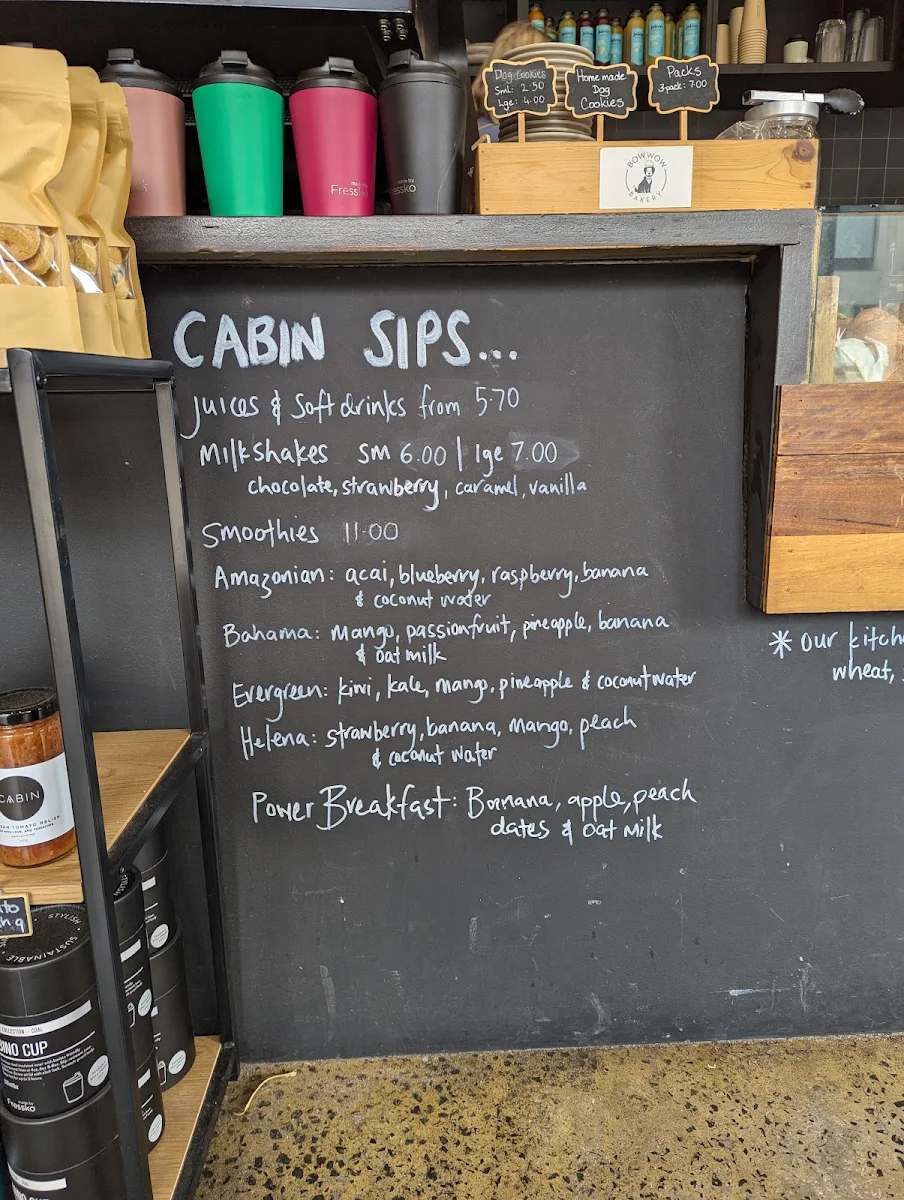 Dog Cookies
Sml: 2.50
Lge: 4.00
Homemade
Dog
Cookies
Packs
3-pack: 7.00
BOWWOW
BAKERY
made by
Fressko
made by
Fressko
CABIN SIPS...
Juices & Soft drinks from 5.70
Milkshakes sm 6.00 | lge 7.00
chocolate, strawberry, caramel, vanilla
Smoothies 11.00
Amazonian: acai, blueberry, raspberry, banana
& coconut water
Bahama: Mango, passionfruit, pineapple, banana
& oat milk
Evergreen: kiwi, kale, mango, pineapple & coconut water
Helena: strawberry, banana, mango, peach
& coconut water
Power Breakfast: Banana, apple, peach
dates & oat milk
* our kitche
wheat,
CABIN
TOMATO RELISH
STYLISH
SUSTAINABLE
COLLECTION COAL
BINO CUP
made by
Fressko
BINO CUP